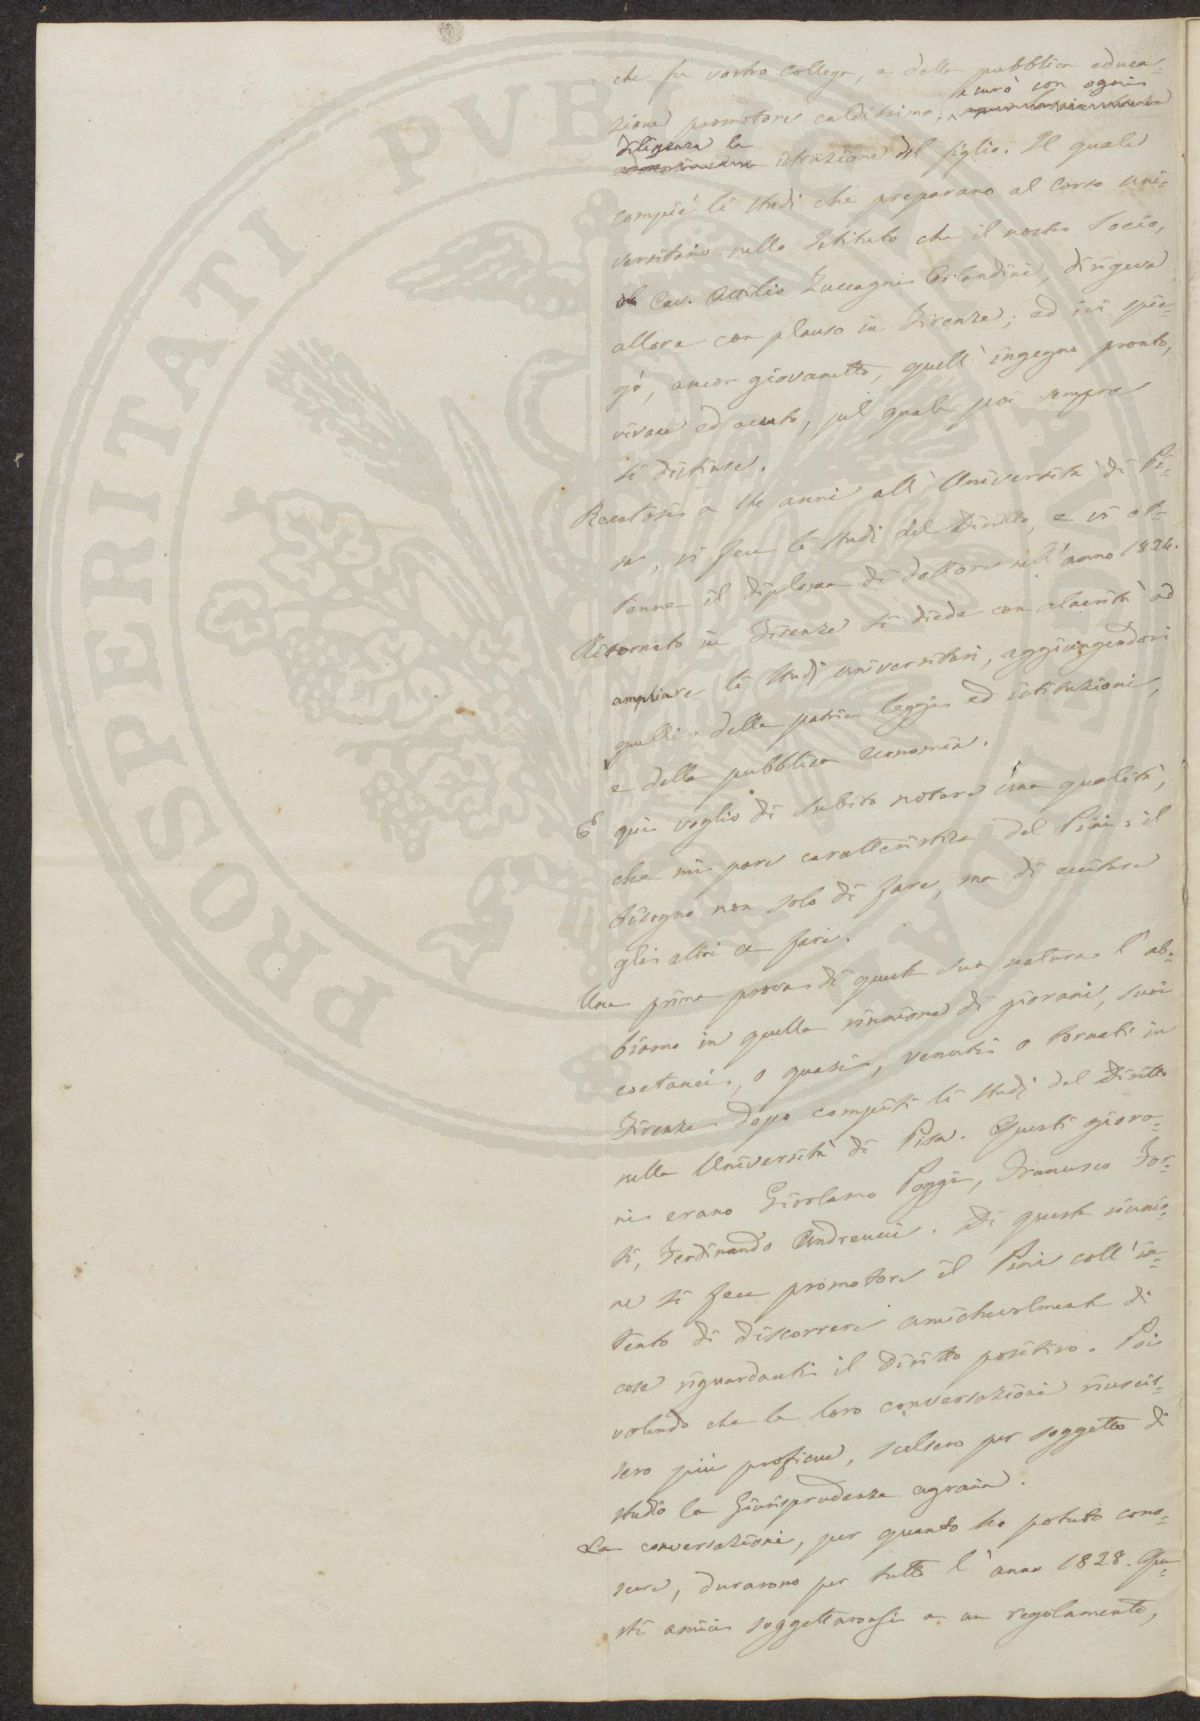 che fu vostro collega, e della pubblica educa-
zione promotore caldissimo, curò con ogni
diligenza la istruzione del figlio. Il quale
compié li studi che preparano al corso uni-
versitario nello Istituto che il nostro Socio,
il Cav. Attilio Zuccagni Orlandini, dirigeva
allora con plauso in Firenze; ed ivi spie-
gò, ancor giovanetto, quell'ingegno pronto,
vivace ed acuto, pel quale poi sempre
si distinse.
Recatosi a anni all'Università di Pi-
sa, vi fece li studi del Diritto, e vi ot-
tenne il diploma di dottore nell'anno 1824.
Ritornato in Firenze si diede con alacrità ad
ampliare li studi universitari, aggiungendovi
quelli della patria leggi ed istituzioni,
e della pubblica economia.
E qui voglio di subito notare una qualità,
che mi pare caratteristica del Pini: il
bisogno non solo di fare, ma di eccitare
gli altri a fare.
Una prima prova di questa sua natura l'ab-
biamo in quella riunione di giovani, suoi
coetanei, o quasi, venuti o tornati in
Firenze dopo compiti li studi del Diritto
nella Università di Pisa. Questi giova-
ni erano Girolamo Poggi, Francesco For-
ti, Ferdinando Andreucci. Di questa riunio-
ne si fece promotore il Pini coll'in-
tento di discorrere amichevolmente di
cose riguardanti il diritto positivo. Poi
volendo che le loro conversazioni riuscis-
sero più proficue, scelsero per soggetto di
studio la Giurisprudenza agraria.
Le conversazioni, per quanto ho potuto cono-
scere, durarono per tutto l'anno 1828. Que-
sti amici soggettaronsi a un regolamento,
PROSPERITATI PVBLICAE AVGENDAE